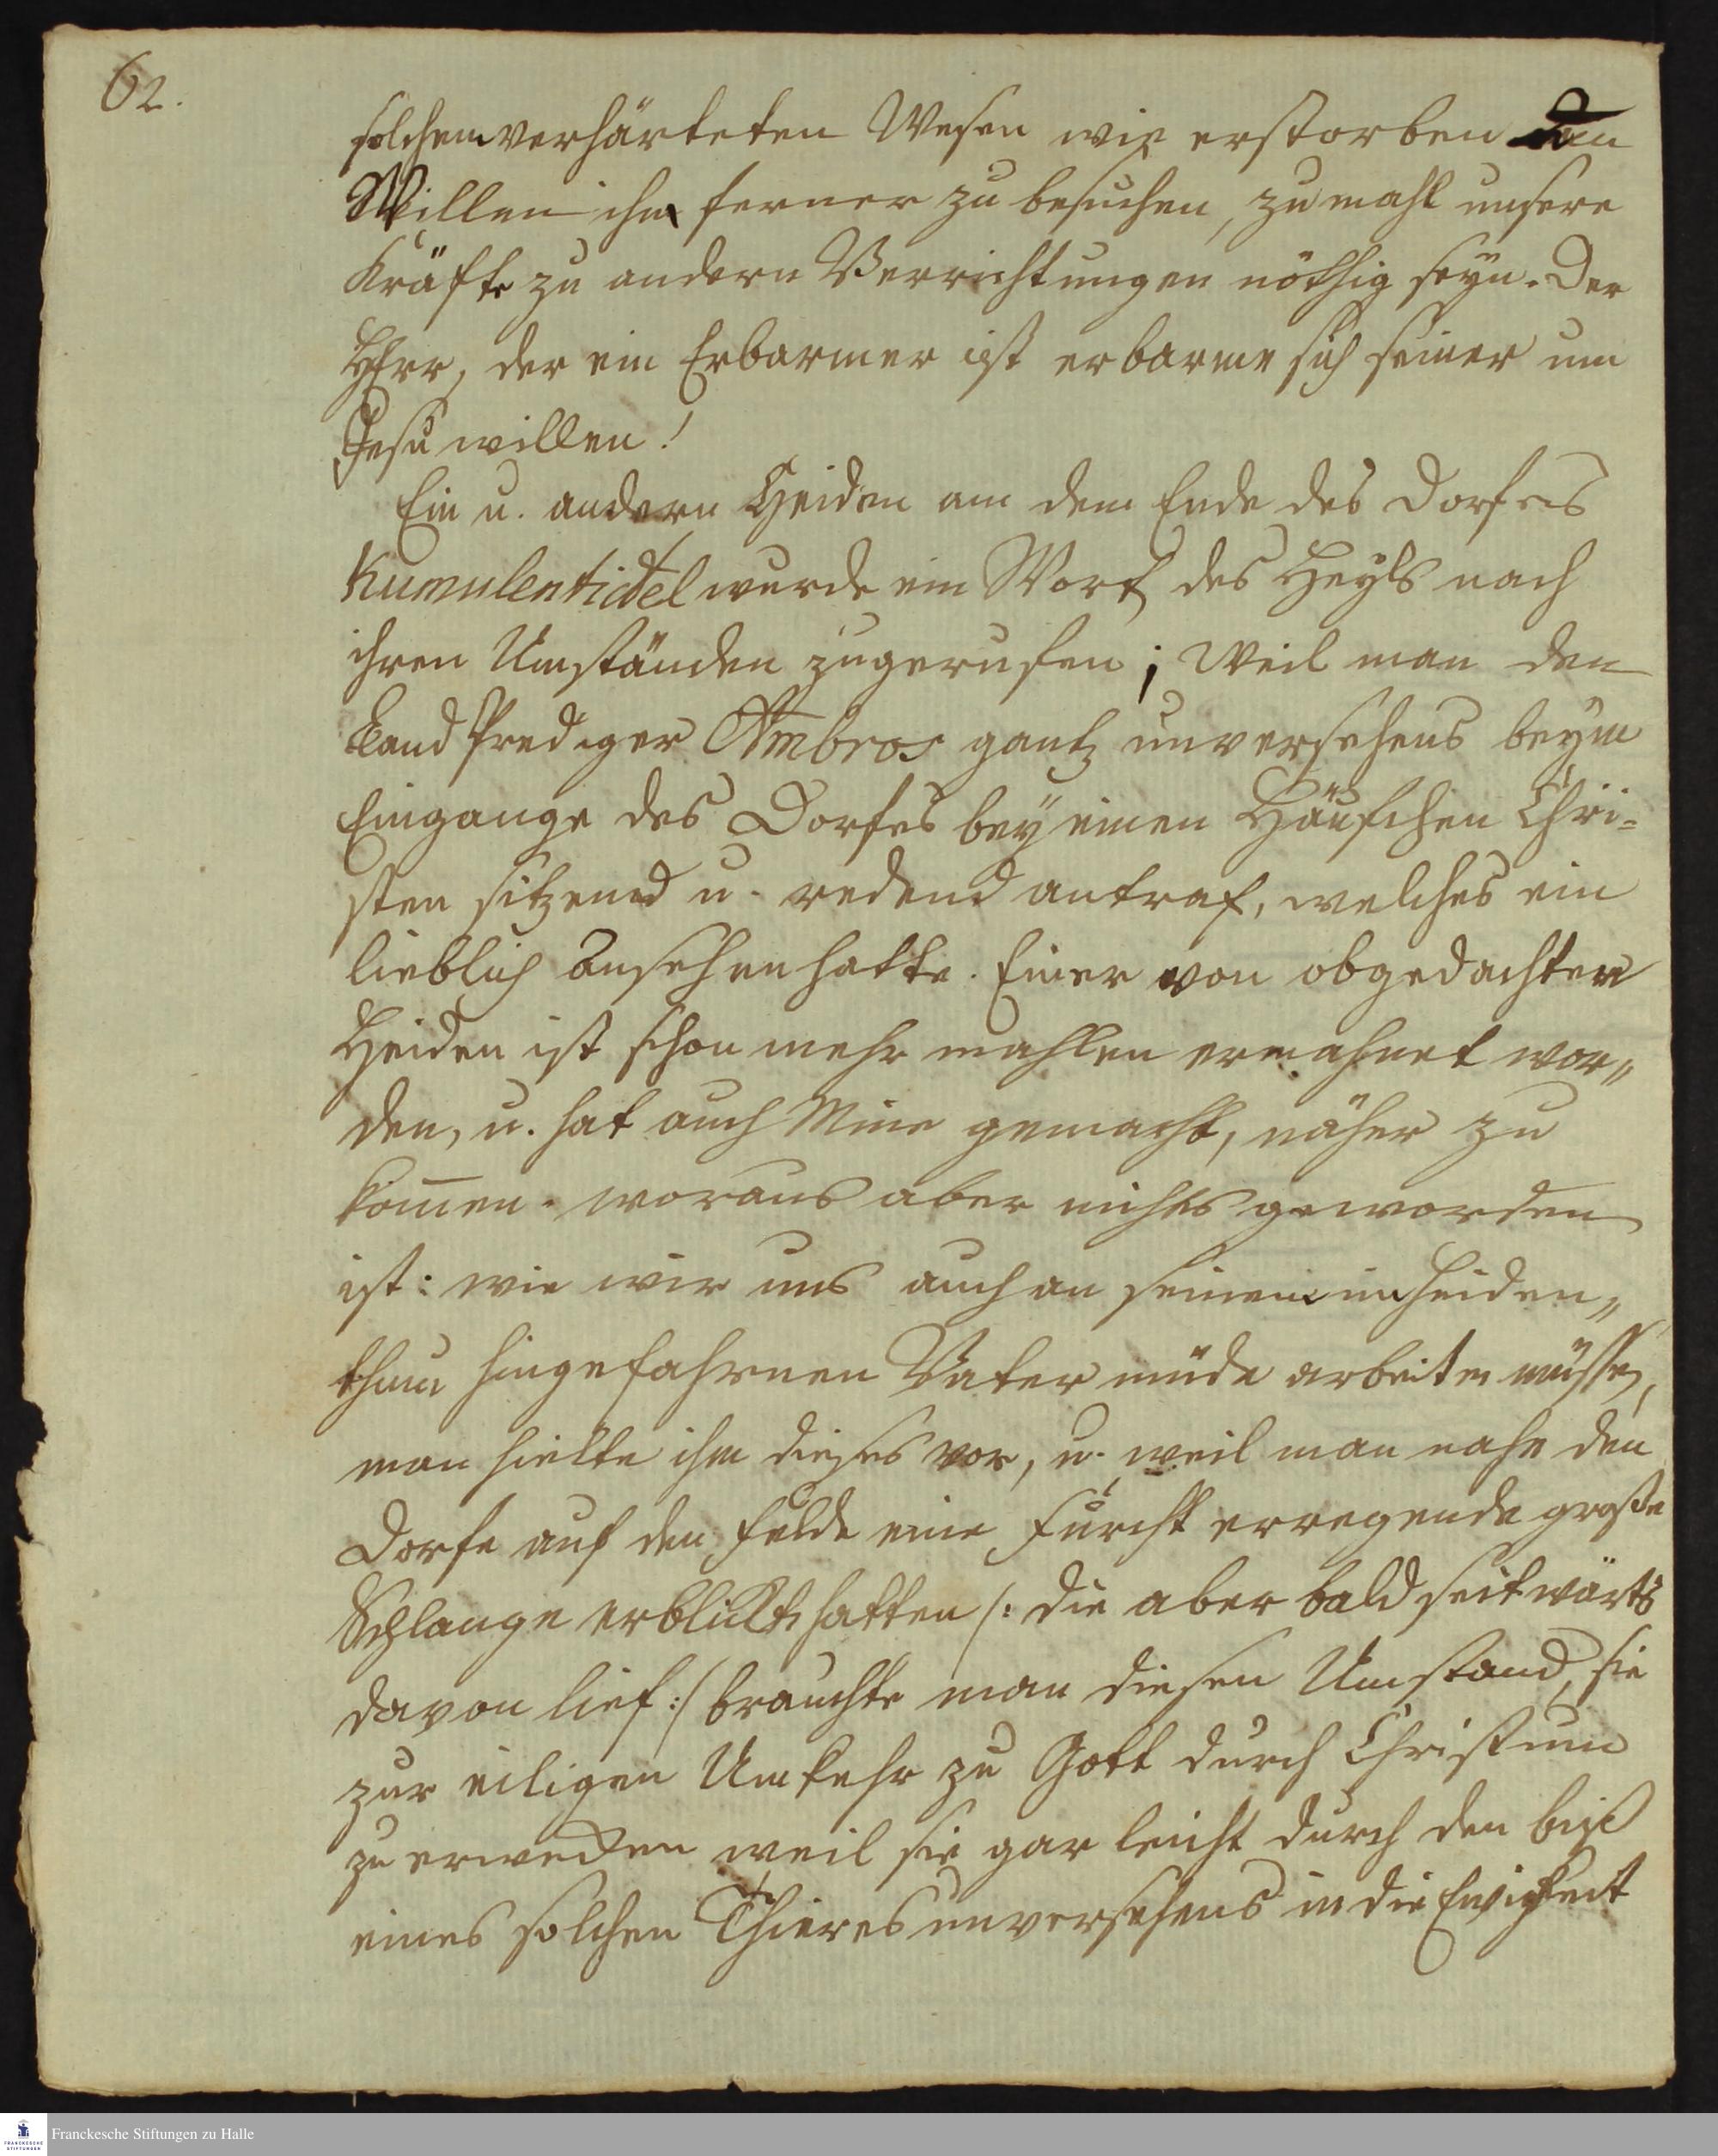 62.
solchem verhärteten Wesen wie erstorben den
Willen ihn ferner zu besuchen, zu mahl unsere
Kräfte zu andern Verrichtungen nöthig seyn. Der
HErr, der ein Erbarmer ist erbarme sich seiner um
Jesu willen!
Ein u. andern Heiden am dem Ende des Dorfes
Kumulentidel wurde ein Wort des Heyls nach
ihren Umständen zugerufen; Weil man den
Land Prediger Ambros gantz unversehens beym
Eingange des Dorfes bey einen Häufchen Chri=
sten sitzend u. redend antraf, welches ein
lieblich Ansehen hatte. Einer von obgedachten
Heiden ist schon mehr mahlen ermahnet wor„
den, u. hat auch Mine gemacht, näher zu
kom̅en. woraus aber nichts geworden
ist: wie wir uns auch an seinem im Heiden„
thum hingefahrnen Vater müde arbeiten müssen,
man hielte ihm dieses vor, u. weil man nahe den
Dorfe auf den Felde eine Furcht erregende große
Schlange erblickt hatten /: die aber bald seitwärts
davon lief :/ brauchte man diesen Umstand, sie
zur eiligen Umkehr zu Gott durch Christum
zu erwecken weil sie gar leicht durch den biß
eines solchen Thieres unversehens in die Ewigkeit
Franckesche Stiftungen zu Halle